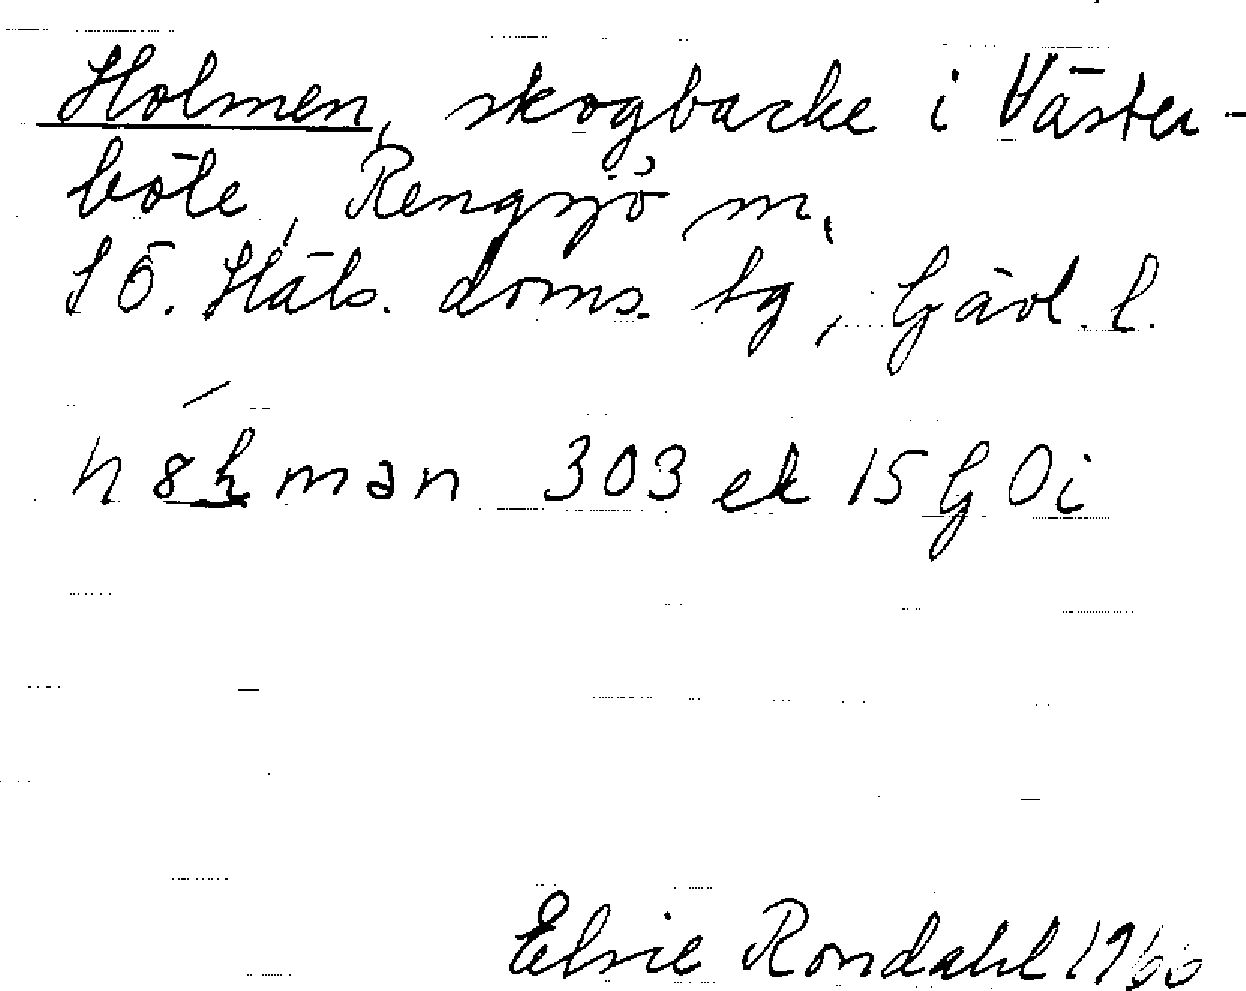 Holmen, skogbacke i Väster-
böle, Rengsjö m.
SÖ. Häls. doms. tg, Gävl. l.
303 ek 15 G Oi
Elsie Rondahl 1960